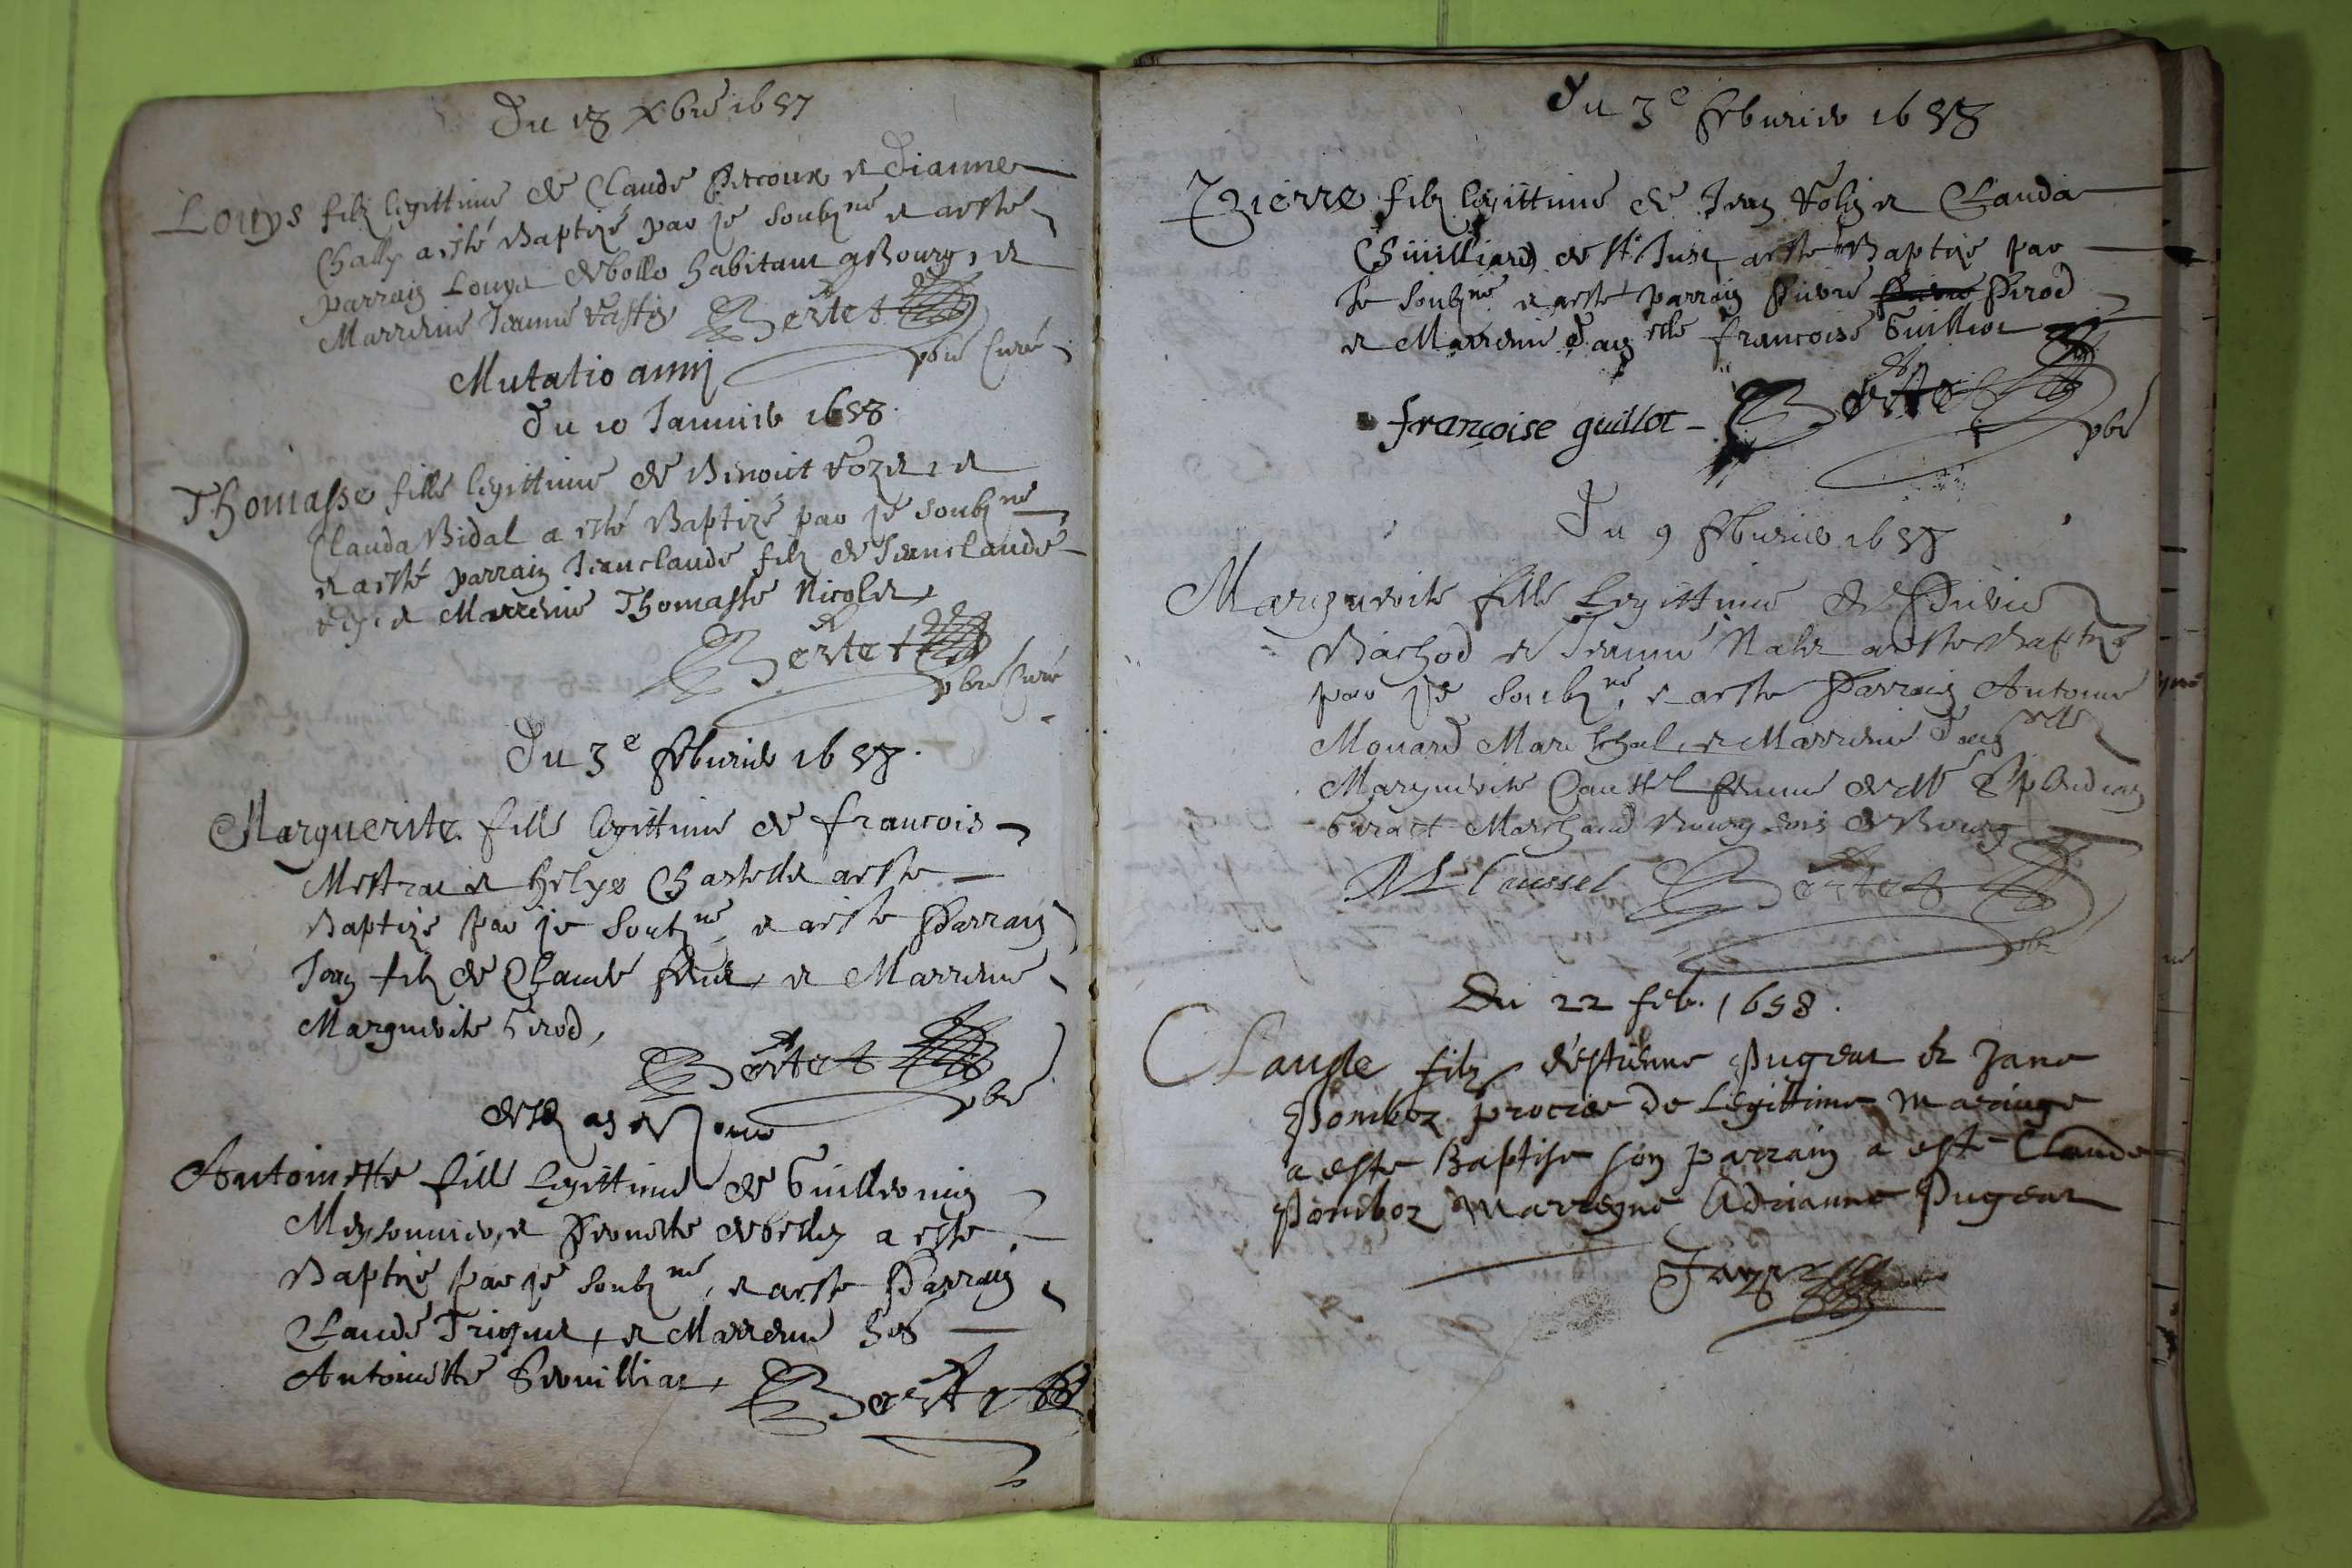 Du 18 Xbre 1657
Louys filz legittime de Claude Percoux et Dianne
Chally a esté Baptizé par je soubzné et a esté
parrain Louys debollo habitant a Bourg, et
Marrenne Jeanne
Bertet
pbre Curé
Mutatio anni
Du 10 Januier 1658.
Thomasse fille legittime de Benoict et
Clauda Vidal a esté Baptizé par je soubzné
et a esté parrain Jeanclaude filz de Jeanclaude
et Marrenne Thomasse Nicolet,
Bertet
pbre Curé
Du 3e feburier 1658.
Marguerite fille legittime de francois
Mestrae et helye Chastellet a este
Baptizé par je soubzné, et a este Parrain
Jean filz de Claude et Marrenne
Marguerite Girod,
Bertet
pbre
Antoinette fille legittime de Guillermin
Meyssonnier, et Pernette debelley a este
Baptizé par je soubzné, et a este Parrain
Claude Triquet, et Marrenne
Antoinette
Bertet
Du 3e feburier 1658
Pierre filz legittime de Jean et Clauda
Guilliard de St Just a esté Baptizé par
Je soubzné et a esté parrain Pierre Pierre Perod
et Marrenne Damelle francoise Guilliot
françoise guillot
Bertet
pbre
Du 9 feburier 1658
Marguerite fille Legittime de Pierre
Bachod et Jeanne a este Baptizé
par je soubzné, et a este Parrain Antoine
Monard Mareschal, et Marrenne Damelle
Marguerite Caussel femme de Mr Splendian
Marchand Bourgeois de Bourg
M Caussel Bertet
pbre
Du 22 feb. 1658.
Claude filz d'estienne Pugeat et Jane
Pomboz procree de Legittime mariage
a este Baptise son parrain a esté Claude
Pomboz Marregne Adrianne Pugeat